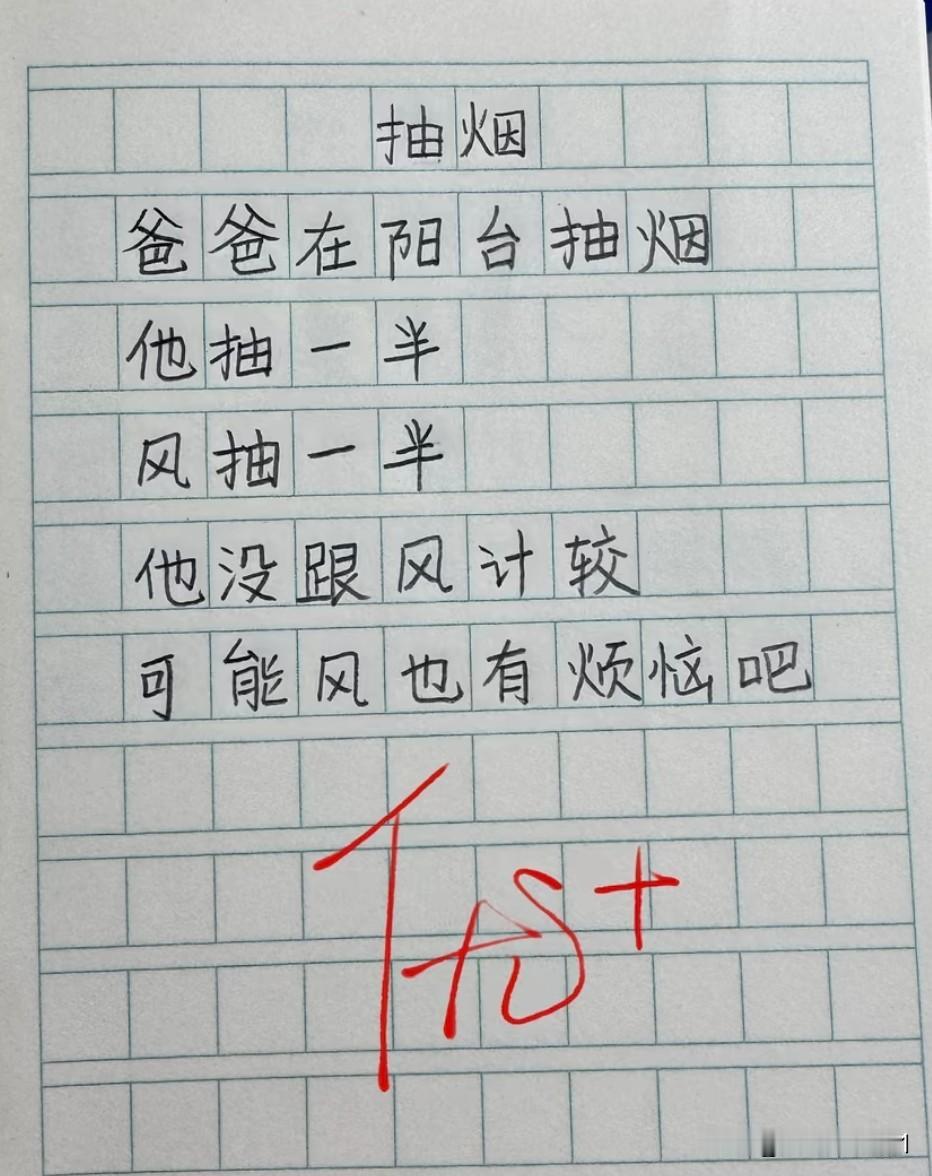 抽烟
爸爸在阳台抽烟
他抽一半
风抽一半
他没跟风计较
可能风也有烦恼吧